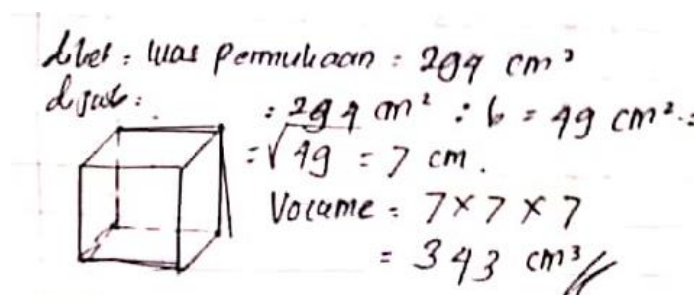 diket : luas permukaan : 294 cm³
dijwb : = 294 cm² : 6 = 49 cm² :
= √49 = 7 cm.
Volume = 7 × 7 × 7
= 343 cm³ //